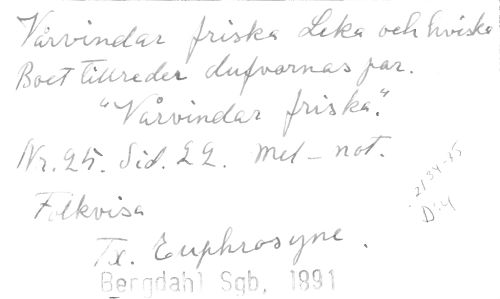 Vårvindar friska Leka och hviska
Boet tillreder dufvornas par.
"Vårvindar friska."
Nr. 25. Sid. 22. Mel-not.
2134-85
D:4
Folkvisa
Tx. Euphrosyne.
Bergdahl Sgb, 1891